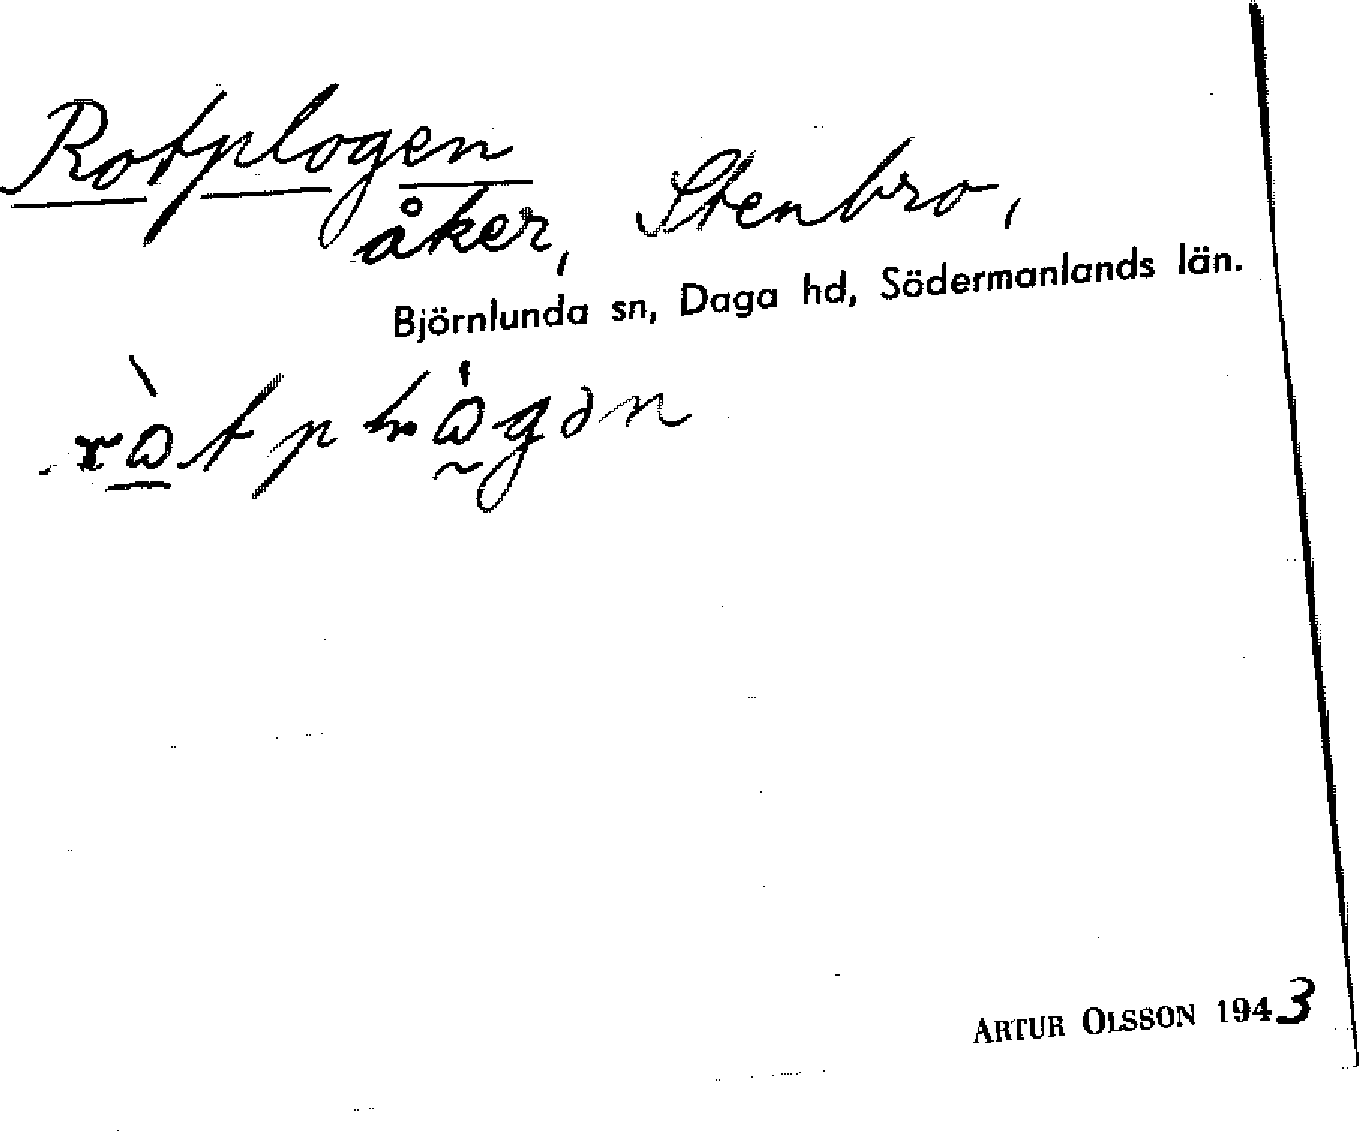 Rotplogen
åker, Stenbro,
Björnlunda sn, Daga hd, Södermanlands län.
ARTUR OLSSON 1943